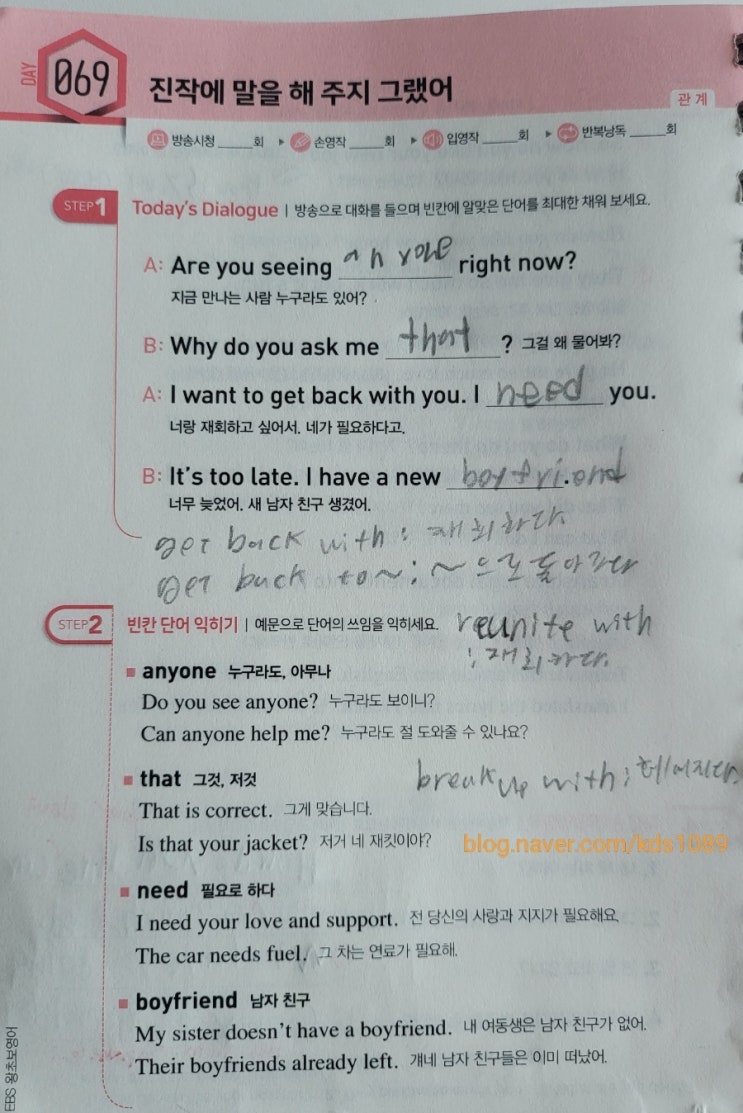 DAY 069 진작에 말을 해 주지 그랬어
관계
방송시청 _____회 ▸ 손영작 _____회 ▸ 입영작 _____회 ▸ 반복낭독 _____회
STEP1 Today's Dialogue | 방송으로 대화를 들으며 빈칸에 알맞은 단어를 최대한 채워 보세요.
A: Are you seeing right now?
지금 만나는 사람 누구라도 있어?
B: Why do you ask me that? 그걸 왜 물어봐?
A: I want to get back with you. I need you.
너랑 재회하고 싶어서. 네가 필요하다고.
B: It's too late. I have a new boyfriend.
너무 늦었어. 새 남자 친구 생겼어.
get back with : 재회하다
get back to~ : ~으로 돌아가다
STEP2 빈칸 단어 익히기 | 예문으로 단어의 쓰임을 익히세요.
reunite with
: 재회하다.
anyone 누구라도, 아무나
Do you see anyone? 누구라도 보이니?
Can anyone help me? 누구라도 절 도와줄 수 있나요?
that 그것, 저것
break up with : 헤어지다.
That is correct. 그게 맞습니다.
Is that your jacket? 저거 네 재킷이야?
blog.naver.com/kds1089
need 필요로 하다
I need your love and support. 전 당신의 사랑과 지지가 필요해요.
The car needs fuel. 그 차는 연료가 필요해.
boyfriend 남자 친구
My sister doesn't have a boyfriend. 내 여동생은 남자 친구가 없어.
Their boyfriends already left. 걔네 남자 친구들은 이미 떠났어.
EBS 왕초보영어